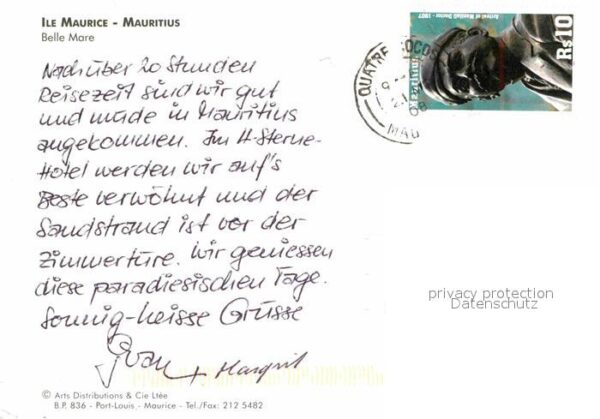 ILE MAURICE - MAURITIUS
Belle Mare
Nach über 20 Stunden
Reisezeit sind wir gut
und müde in Mauritius
angekommen. Im 4-Sterne-
Hotel werden wir auf's
Beste verwöhnt und der
Sandstrand ist vor der
Zimmertüre. Wir geniessen
diese paradiesischen Tage.
Sonnig-heisse Grüsse
+ Margrit
© Arts Distributions & Cie Ltée
B.P. 836 - Port-Louis - Maurice - Tel./Fax: 212 5482
QUATRE
MAU
Arrival of Manilall Doctor - 1907
Mauritius
Rs 10
privacy protection
Datenschutz